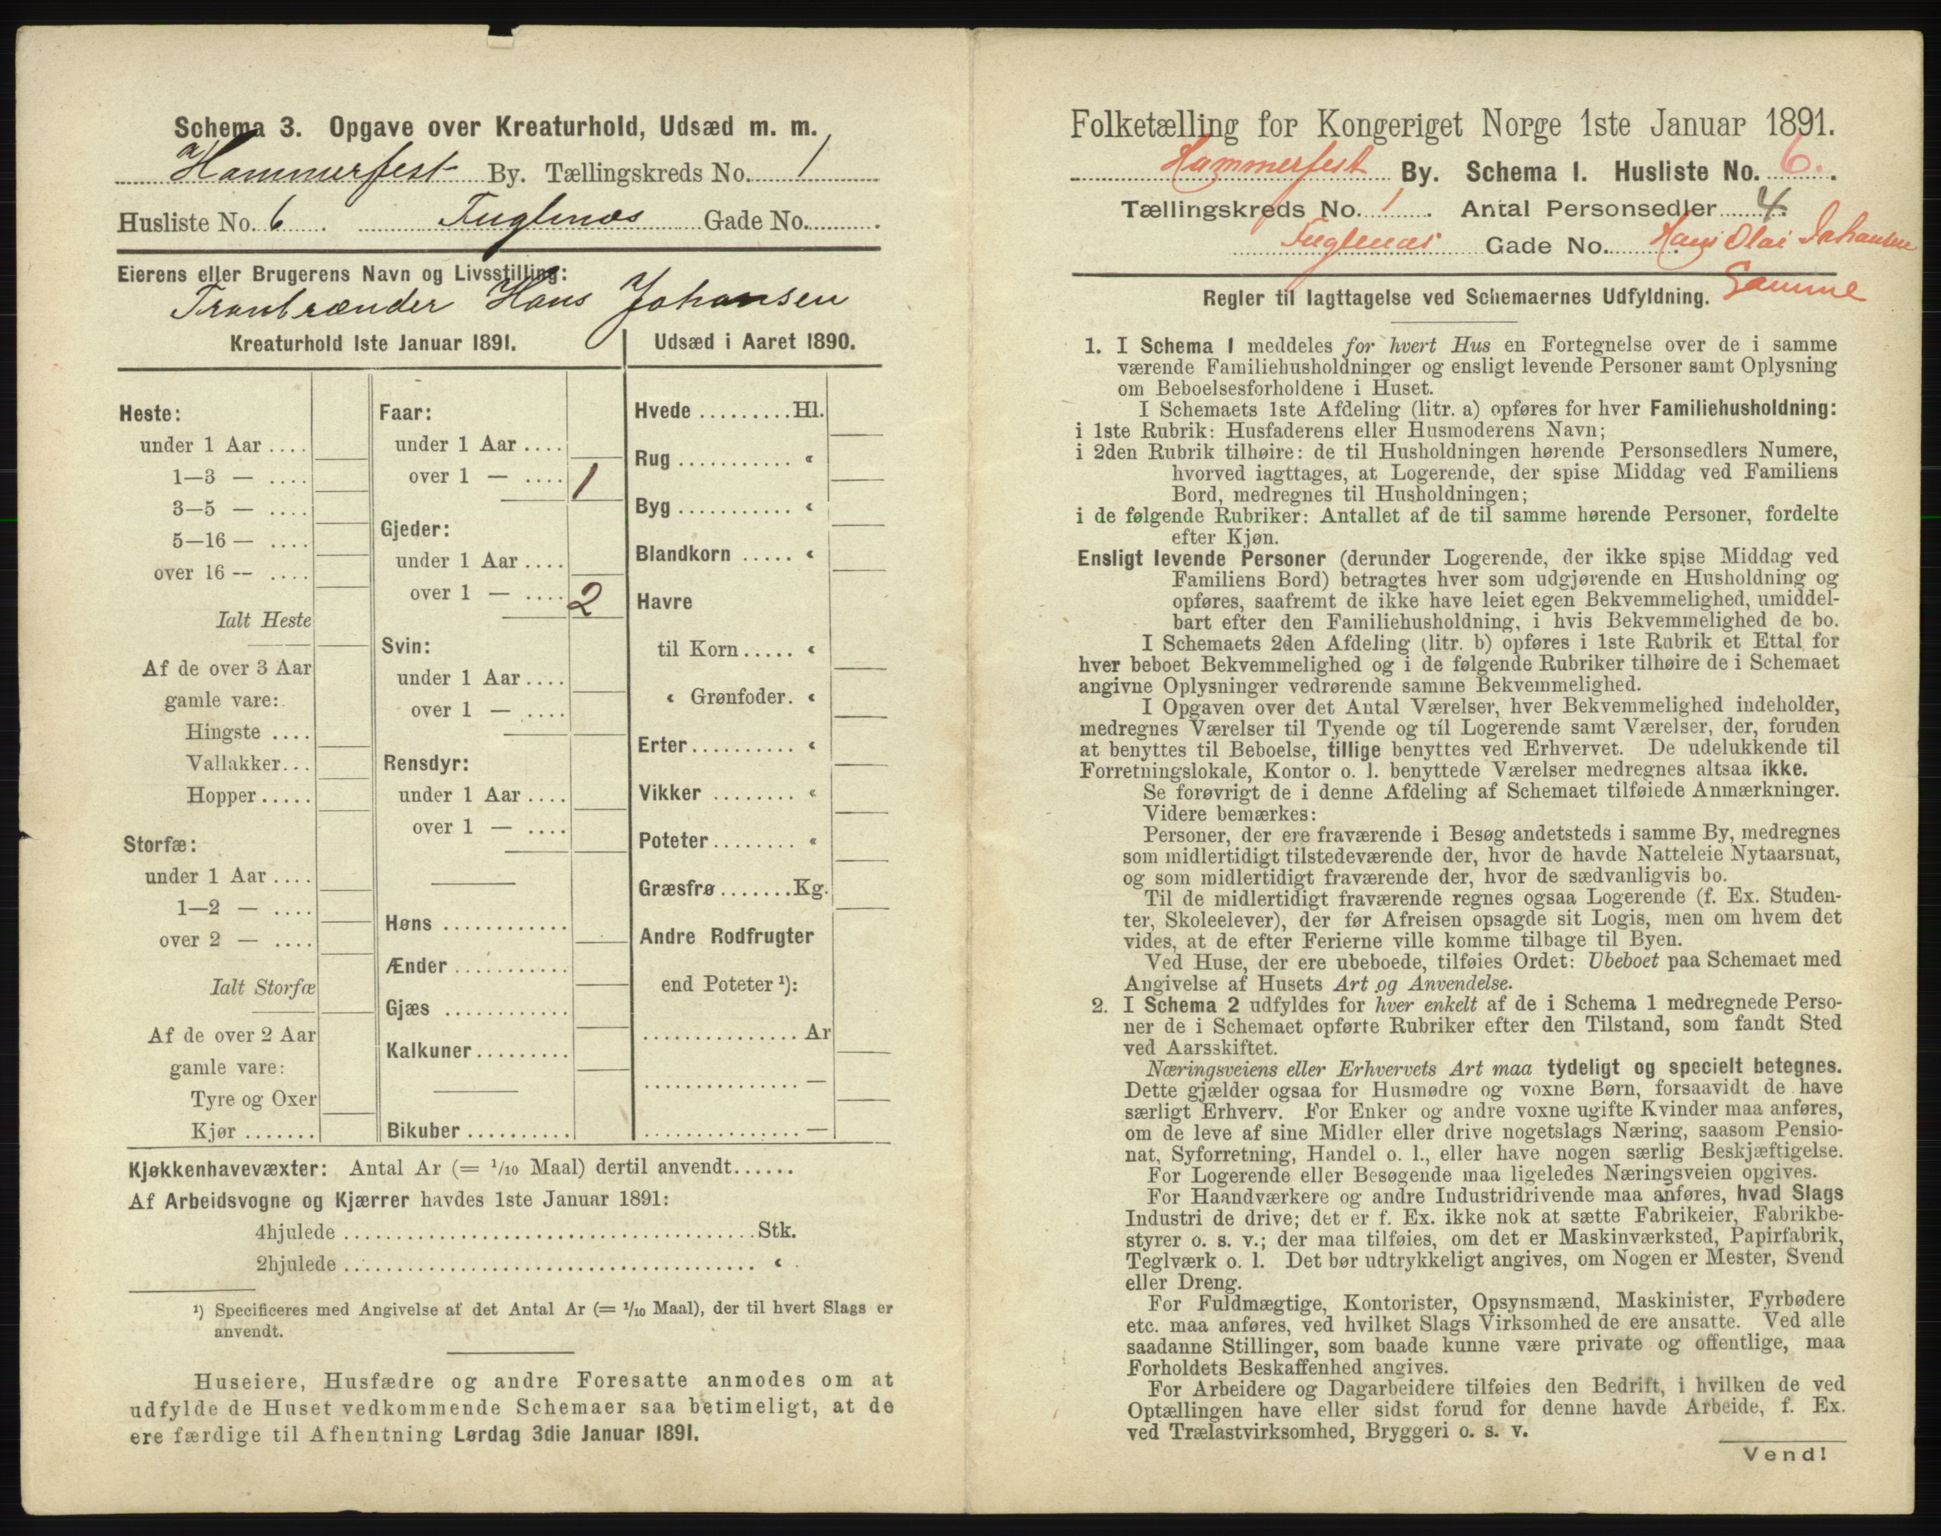 Schema 3. Opgave over Kreaturhold, Udsæd m. m.
Hammerfest By. Tællingskreds No. 1
Husliste No. 6 Fuglenæs Gade No.
Eierens eller Brugerens Navn og Livsstilling:
Tranbrænder Hans Johansen
Kreaturhold 1ste Januar 1891.
Heste:
under 1 Aar ....
1—3 — ....
3—5 — ....
5—16 — ....
over 16 — ....
Ialt Heste
Af de over 3 Aar
gamle vare:
Hingste ....
Vallakker...
Hopper.....
Storfæ:
under 1 Aar ....
1—2 — ....
over 2 — ....
Ialt Storfæ
Af de over 2 Aar
gamle vare:
Tyre og Oxer
Kjør .......
Faar:
under 1 Aar ....
over 1 — .... 1
Gjeder:
under 1 Aar ....
over 1 — .... 2
Svin:
under 1 Aar ....
over 1 — ....
Rensdyr:
under 1 Aar ....
over 1 — ....
Høns ............
Ænder ...........
Gjæs ............
Kalkuner.........
Bikuber ..........
Udsæd i Aaret 1890.
Hvede .........Hl.
Rug ........... «
Byg ........... «
Blandkorn ..... «
Havre
til Korn ..... «
« Grønfoder. «
Erter.......... «
Vikker ........ «
Poteter........ «
Græsfrø .......Kg.
Andre Rodfrugter
end Poteter ¹):
............... Ar
............... —
............... —
Kjøkkenhavevæxter: Antal Ar (= 1/10 Maal) dertil anvendt......
Af Arbeidsvogne og Kjærrer havdes 1ste Januar 1891:
4hjulede ........................................Stk.
2hjulede ........................................ «
¹) Specificeres med Angivelse af det Antal Ar (= 1/10 Maal), der til hvert Slags er
anvendt.
Huseiere, Husfædre og andre Foresatte anmodes om at
udfylde de Huset vedkommende Schemaer saa betimeligt, at de
ere færdige til Afhentning Lørdag 3die Januar 1891.
Folketælling for Kongeriget Norge 1ste Januar 1891.
Hammerfest By. Schema 1. Husliste No. 6.
Tællingskreds No. 1. Antal Personsedler 4.
Fuglenæs Gade No. Hans Olai Johansen
Samme
Regler til Iagttagelse ved Schemaernes Udfyldning.
1. I Schema 1 meddeles for hvert Hus en Fortegnelse over de i samme
værende Familiehusholdninger og ensligt levende Personer samt Oplysning
om Beboelsesforholdene i Huset.
I Schemaets 1ste Afdeling (litr. a) opføres for hver Familiehusholdning:
i 1ste Rubrik: Husfaderens eller Husmoderens Navn;
i 2den Rubrik tilhøire: de til Husholdningen hørende Personsedlers Numere,
hvorved iagttages, at Logerende, der spise Middag ved Familiens
Bord, medregnes til Husholdningen;
i de følgende Rubriker: Antallet af de til samme hørende Personer, fordelte
efter Kjøn.
Ensligt levende Personer (derunder Logerende, der ikke spise Middag ved
Familiens Bord) betragtes hver som udgjørende en Husholdning og
opføres, saafremt de ikke have leiet egen Bekvemmelighed, umiddel-
bart efter den Familiehusholdning, i hvis Bekvemmelighed de bo.
I Schemaets 2den Afdeling (litr. b) opføres i 1ste Rubrik et Ettal for
hver beboet Bekvemmelighed og i de følgende Rubriker tilhøire de i Schemaet
angivne Oplysninger vedrørende samme Bekvemmelighed.
I Opgaven over det Antal Værelser, hver Bekvemmelighed indeholder,
medregnes Værelser til Tyende og til Logerende samt Værelser, der, foruden
at benyttes til Beboelse, tillige benyttes ved Erhvervet. De udelukkende til
Forretningslokale, Kontor o. l. benyttede Værelser medregnes altsaa ikke.
Se forøvrigt de i denne Afdeling af Schemaet tilføiede Anmærkninger.
Videre bemærkes:
Personer, der ere fraværende i Besøg andetsteds i samme By, medregnes
som midlertidigt tilstedeværende der, hvor de havde Natteleie Nytaarsnat,
og som midlertidigt fraværende der, hvor de sædvanligvis bo.
Til de midlertidigt fraværende regnes ogsaa Logerende (f. Ex. Studen-
ter, Skoleelever), der før Afreisen opsagde sit Logis, men om hvem det
vides, at de efter Ferierne ville komme tilbage til Byen.
Ved Huse, der ere ubeboede, tilføies Ordet: Ubeboet paa Schemaet med
Angivelse af Husets Art og Anvendelse.
2. I Schema 2 udfyldes for hver enkelt af de i Schema 1 medregnede Perso-
ner de i Schemaet opførte Rubriker efter den Tilstand, som fandt Sted
ved Aarsskiftet.
Næringsveiens eller Erhvervets Art maa tydeligt og specielt betegnes.
Dette gjælder ogsaa for Husmødre og voxne Børn, forsaavidt de have
særligt Erhverv. For Enker og andre voxne ugifte Kvinder maa anføres,
om de leve af sine Midler eller drive nogetslags Næring, saasom Pensio-
nat, Syforretning, Handel o. l., eller have nogen særlig Beskjæftigelse.
For Logerende eller Besøgende maa ligeledes Næringsveien opgives.
For Haandværkere og andre Industridrivende maa anføres, hvad Slags
Industri de drive; det er f. Ex. ikke nok at sætte Fabrikeier, Fabrikbe-
styrer o. s. v.; der maa tilføies, om det er Maskinværksted, Papirfabrik,
Teglværk o. l. Det bør udtrykkeligt angives, om Nogen er Mester, Svend
eller Dreng.
For Fuldmægtige, Kontorister, Opsynsmænd, Maskinister, Fyrbødere
etc. maa anføres, ved hvilket Slags Virksomhed de ere ansatte. Ved alle
saadanne Stillinger, som baade kunne være private og offentlige, maa
Forholdets Beskaffenhed angives.
For Arbeidere og Dagarbeidere tilføies den Bedrift, i hvilken de ved
Optællingen have eller sidst forud for denne havde Arbeide, f. Ex.
ved Trælastvirksomhed, Bryggeri o. s. v.
Vend!